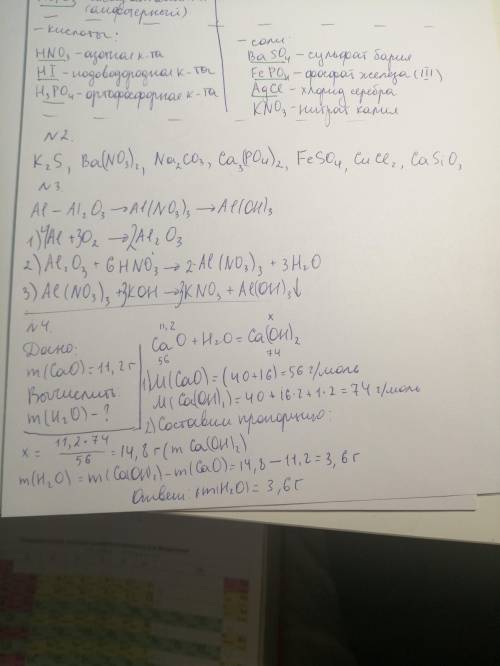 (амфотерный)
– кислоты:
HNO₃ – азотная к-та
HI – иодоводородная к-та
H₃PO₄ – ортофосфорная к-та
– соли:
BaSO₄ – сульфат бария
FePO₄ – фосфат железа (III)
AgCl – хлорид серебра
KNO₃ – нитрат калия
N2.
K₂S, Ba(NO₃)₂, Na₂CO₃, Ca₃(PO₄)₂, FeSO₄, CuCl₂, CaSiO₃
N3.
Al – Al₂O₃ → Al(NO₃)₃ → Al(OH)₃
1) 4Al + 3O₂ → 2Al₂O₃
2) Al₂O₃ + 6HNO₃ → 2Al(NO₃)₃ + 3H₂O
3) Al(NO₃)₃ + 3KOH → 3KNO₃ + Al(OH)₃↓
N4.
Дано:
m(CaO) = 11,2 г
Вычислить:
m(H₂O) – ?
11,2 x
CaO + H₂O = Ca(OH)₂
56 74
1) M(CaO) = (40+16) = 56 г/моль
M(Ca(OH)₂) = 40 + 16·2 + 1·2 = 74 г/моль
2) Составим пропорцию:
x = 11,2·74 / 56 = 14,8 г (m Ca(OH)₂)
m(H₂O) = m(Ca(OH)₂) – m(CaO) = 14,8 – 11,2 = 3,6 г
Ответ: m(H₂O) = 3,6 г